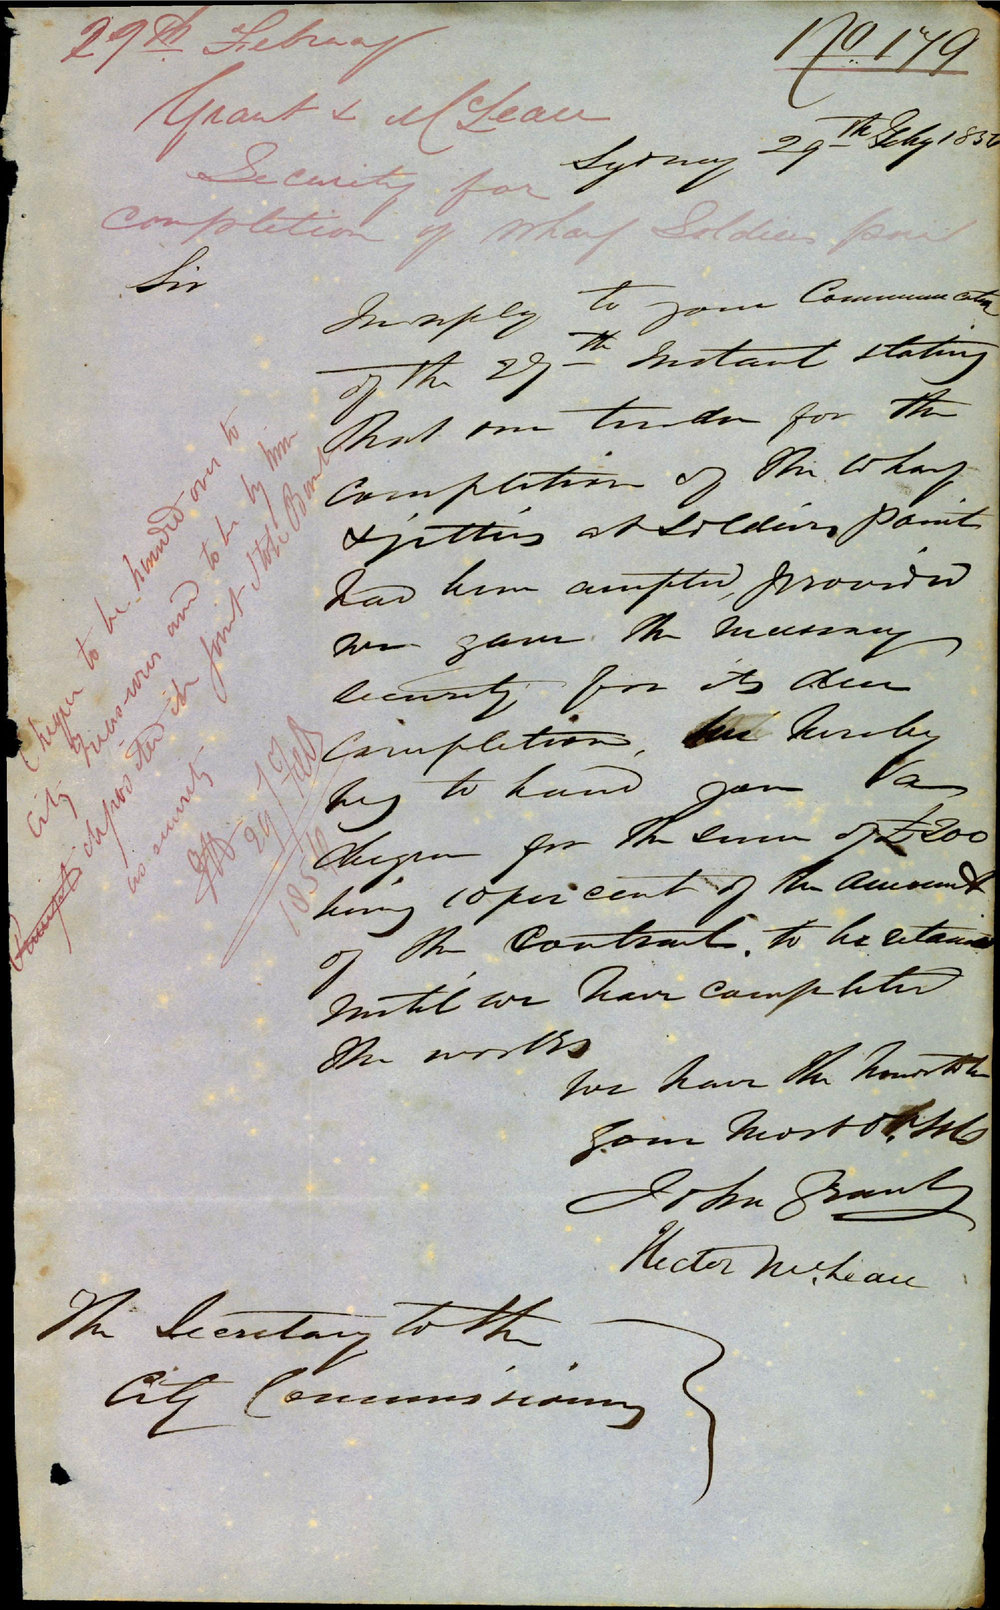 29th February
No. 179
Grant & McLean
Sydney 29th Feby 185
Security for
completion of wharf Soldiers point
Sir
In reply to your Communication
of the 27th Instant stating
that our tender for the
completion of the Wharf
& jetties at Soldiers Point
had been accepted, provided
we gave the necessary
security for its due
completion, We hereby
beg to hand you
cheque for the sum of £200
being 10 per cent of the amount
of the Contract. to be retained
until we have completed
the works
We have the honor to be
Your Most Obt. Sts
John Grant
Hector McLean
The Secretary to the
City Commissioners
Cheque to be handed over to
City Treasurer and to be by him
deposited in Joint Stock Bank
as security
29 Feb
185